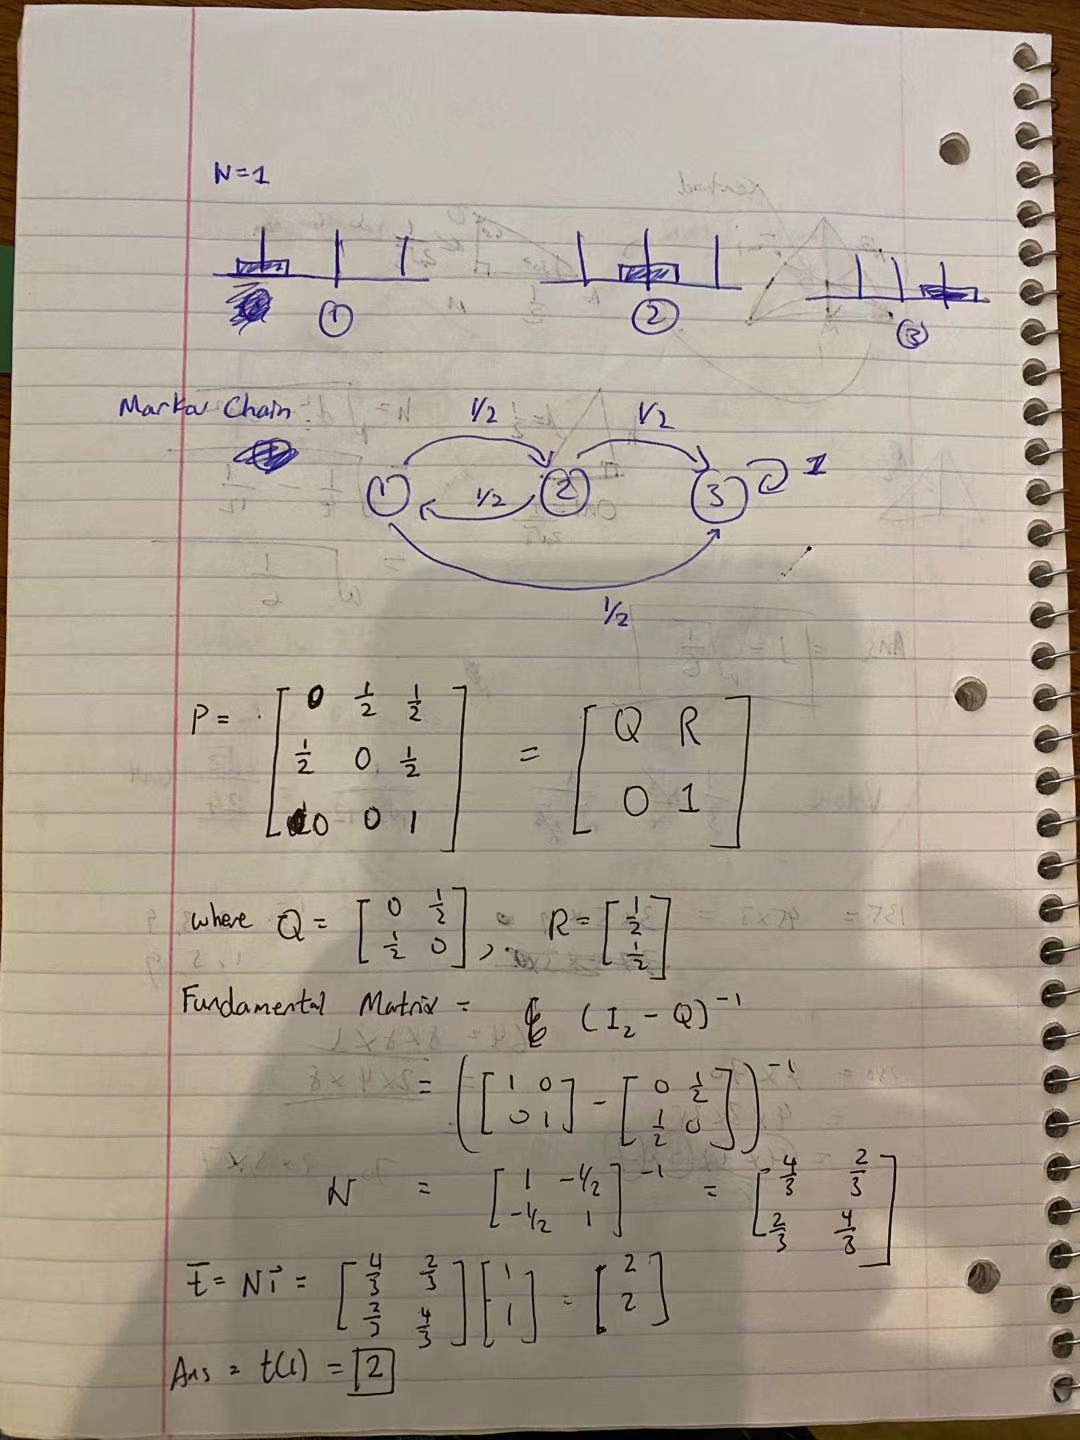 N=1
① ② ③
Markov Chain:
1/2 1/2
① ② ③ 1
1/2
1/2
P = [ 0 1/2 1/2 ; 1/2 0 1/2 ; 0 0 1 ] = [ Q R ; 0 1 ]
where Q = [ 0 1/2 ; 1/2 0 ], R = [ 1/2 ; 1/2 ]
Fundamental Matrix = (I₂ - Q)⁻¹
= ( [ 1 0 ; 0 1 ] - [ 0 1/2 ; 1/2 0 ] )⁻¹
N = [ 1 -1/2 ; -1/2 1 ]⁻¹ = [ 4/3 2/3 ; 2/3 4/3 ]
t̄ = N1⃗ = [ 4/3 2/3 ; 2/3 4/3 ] [ 1 ; 1 ] = [ 2 ; 2 ]
Ans = t(1) = 2